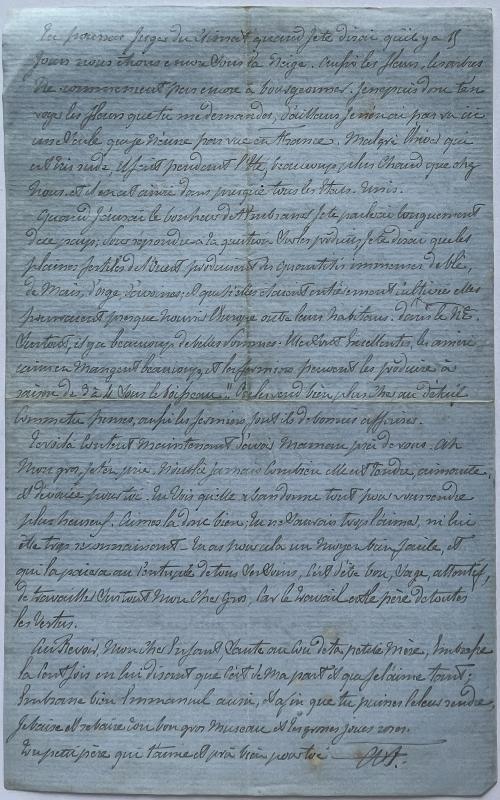 Tu pourras juger du climat quand je te dirai qu'il y a 15
jours nous étions encore sous la neige. Aussi les fleurs, les arbres
ne commencent pas encore à bourgeonner. Je ne puis donc t'en
voyer les fleurs que tu me demandes, d'ailleurs je n'en ai pas vu ici
une seule que je n'eusse pas vue en France. Malgré l'hiver qui
est très rude, il fait pendant l'été, beaucoup plus chaud que chez
nous et il en est ainsi dans presque tous les États-Unis.
Quand j'aurai le bonheur de t'embrasser je te parlerai longuement
de ce pays; pour répondre à ta question sur les produits, je te dirai que les
plaines fertiles de l'Ouest produisent des quantités immenses de blé,
de maïs, d'orge, d'avoines; et que si elles étaient entièrement cultivées elles
pourraient presque nourrir l'Europe outre leurs habitans. Dans le NE.
surtout, il y a beaucoup de belles pommes. Elles sont excellentes, les améri
cains en mangent beaucoup, et les fermiers peuvent les produire à
raison de 3 à 4 sous le boisseau. On les vend bien plus cher au détail
comme tu penses, aussi les fermiers font ils de bonnes affaires.
Te voilà content maintenant d'avoir Maman près de vous. Ah
mon gros, je t'en prie n'oublie jamais combien elle est tendre, aimante
et dévouée pour toi. Tu vois qu'elle abandonne tout pour vous rendre
plus heureux. Aimes la donc bien; tu ne saurais trop l'aimer, ni lui
être trop reconnaissant. Tu as pour cela un moyen bien facile, et
qui la paiera au centuple de tous ses soins, c'est d'être bon, sage, attentif,
de travailler surtout mon cher gros, car le travail est le père de toutes
les vertus.
Au Revoir, mon cher Enfant, saute au cou de ta petite mère, embrasse
la cent fois en lui disant que c'est de ma part et que je l'aime tant;
Embrasse bien Emmanuel aussi, et afin que tu puisses le leur rendre,
je baise et rebaise ton bon gros museau et tes grosses joues roses.
Ton petit père qui t'aime et prie bien pour toi